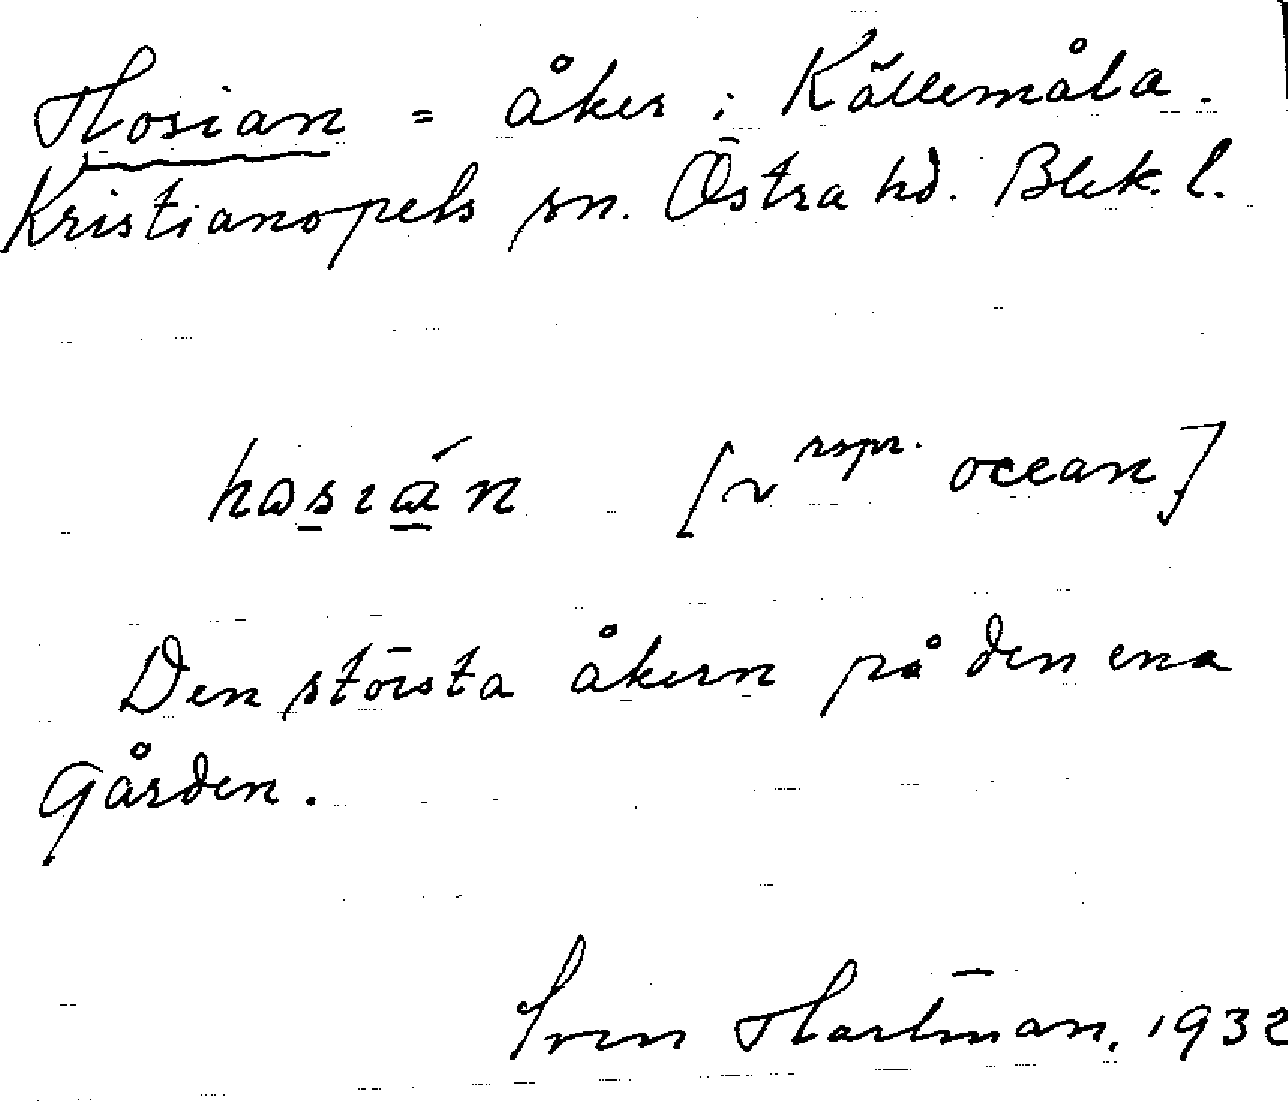 Hosian = åker i Källemåla.
Kristianopels sn. Östra hd. Blek. l.
hosián [~ rspr. ocean]
Den största åkern på den ena
gården.
Sven Hartman, 1932